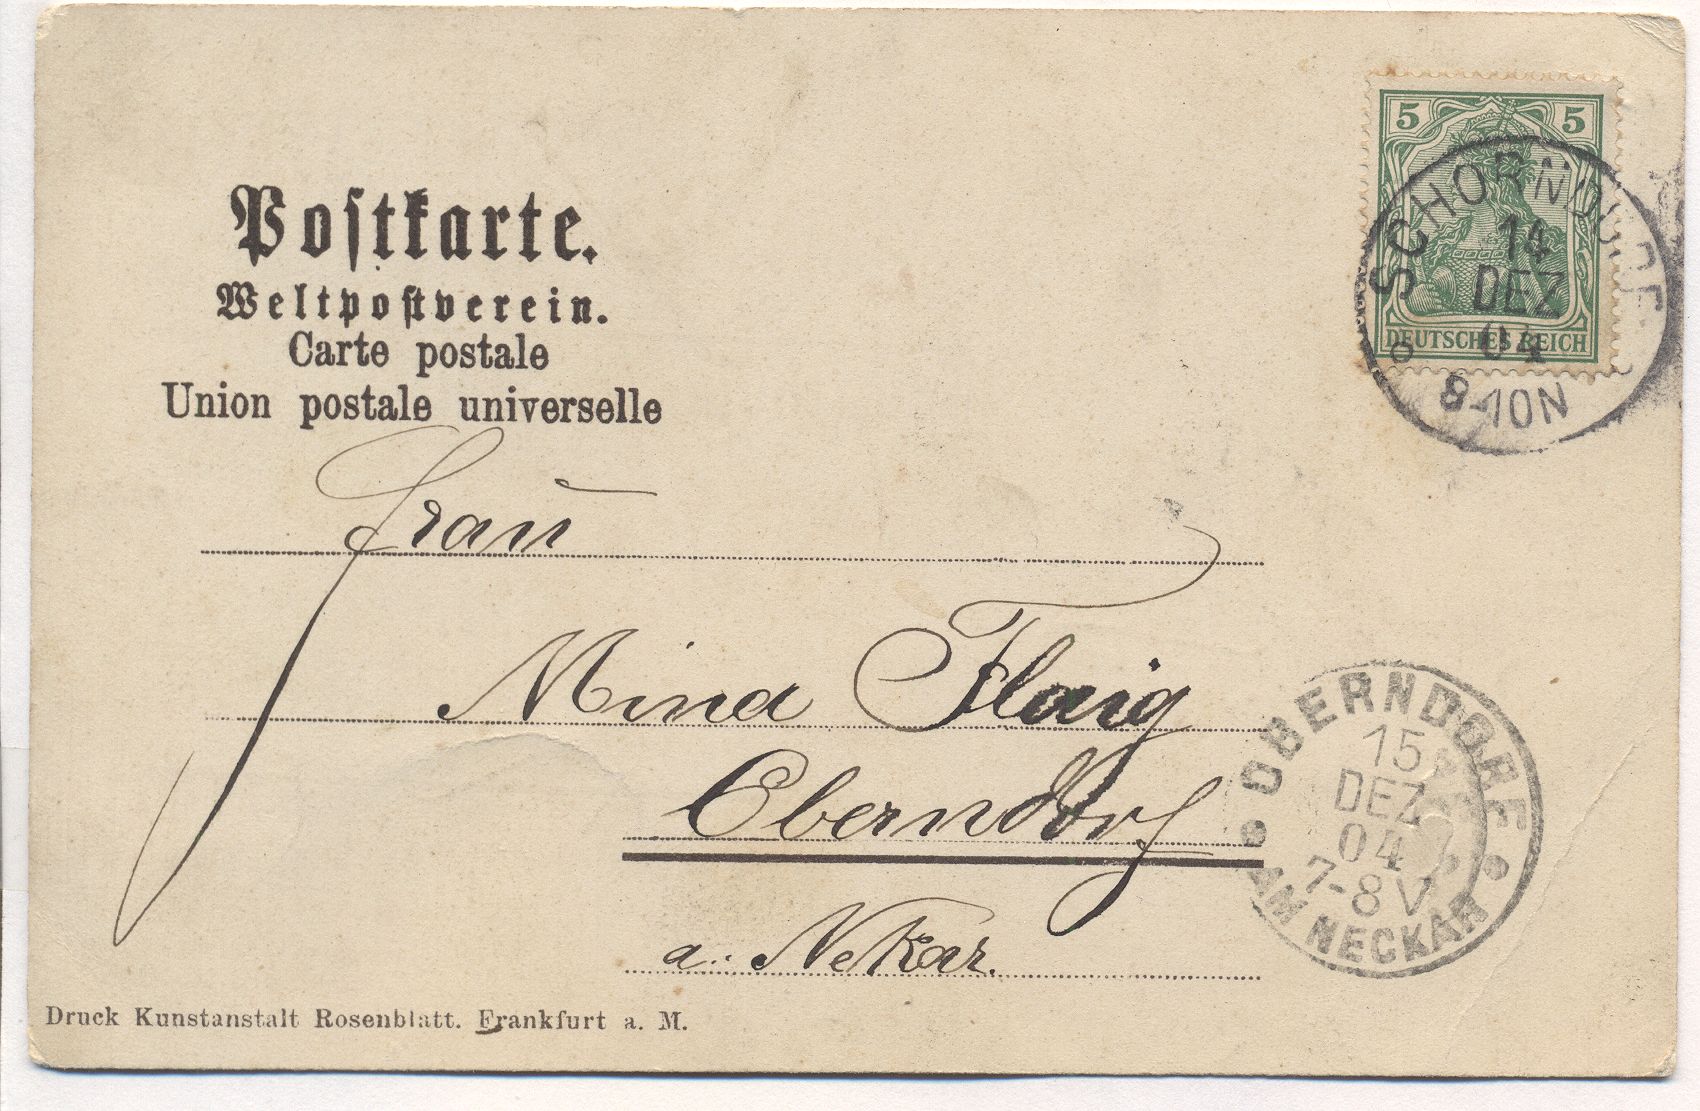 Postkarte.
Weltpostverein.
Carte postale
Union postale universelle
5 5
DEUTSCHES REICH
SCHORNDORF
14
DEZ
04
8-10N
Frau
Mina Flaig
Oberndorf
a. Nekar.
OBERNDORF
15
DEZ
04
7-8V
AM NECKAR
Druck Kunstanstalt Rosenblatt. Frankfurt a. M.